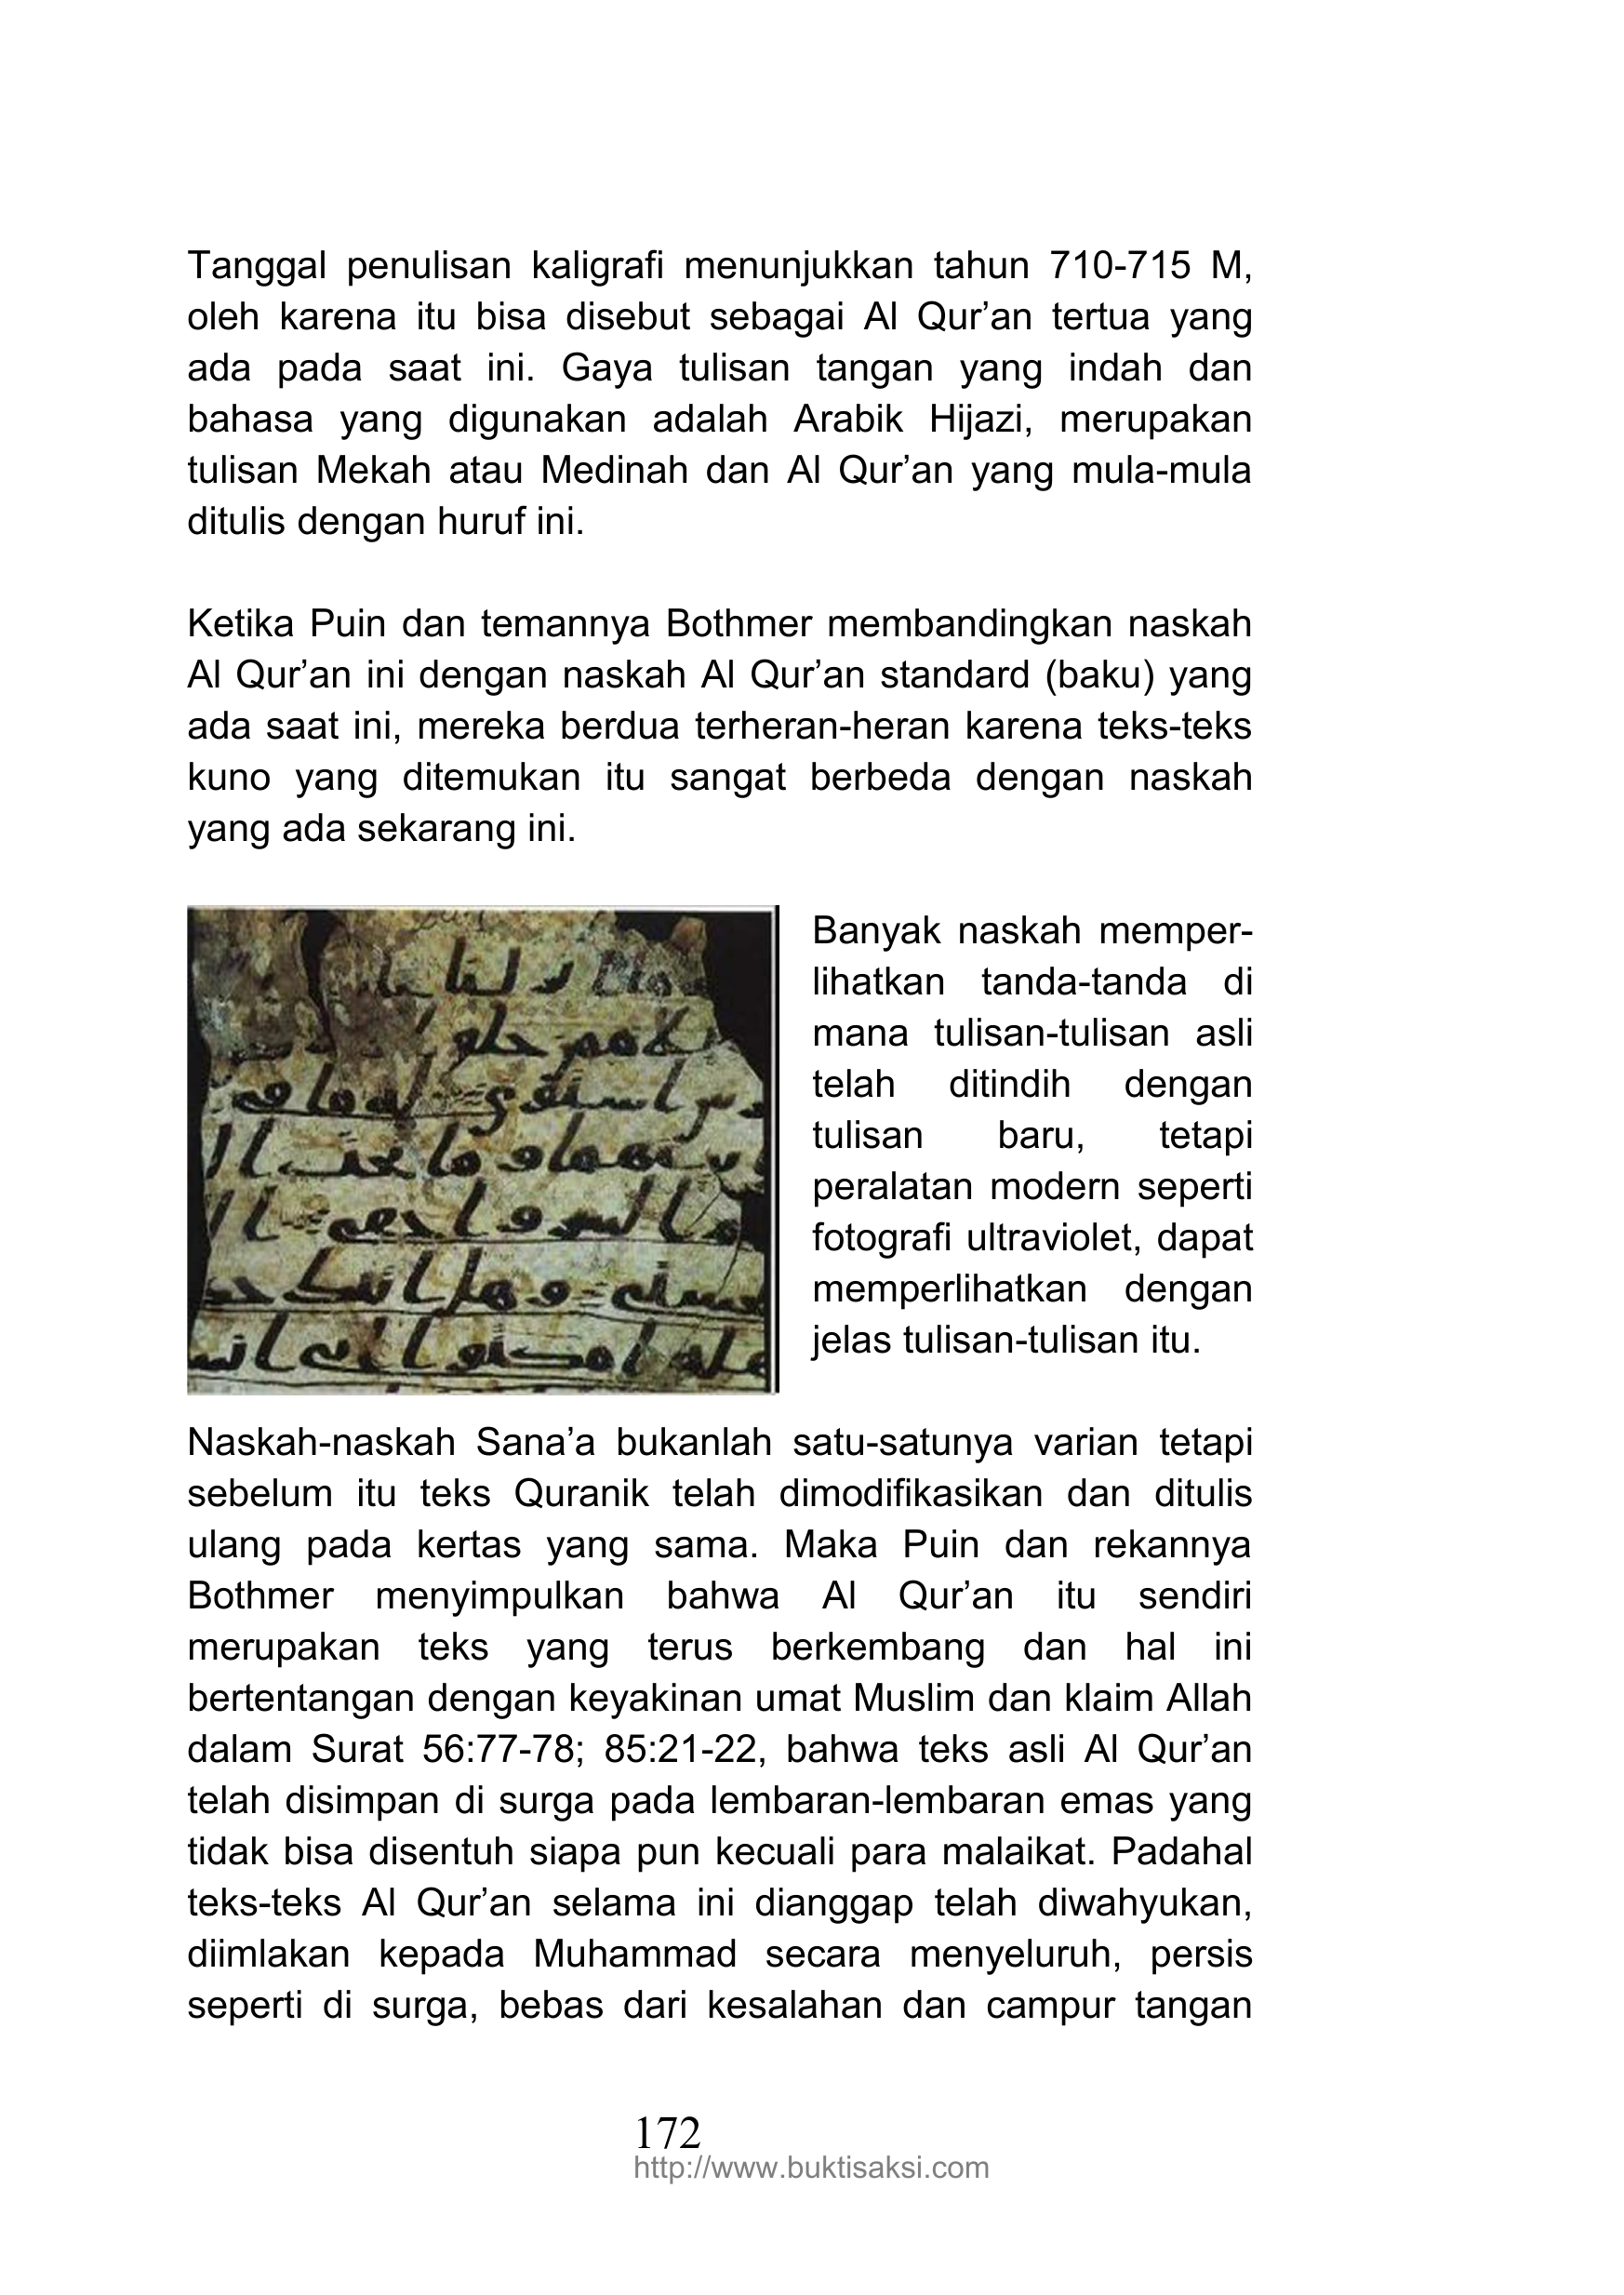 Tanggal penulisan kaligrafi menunjukkan tahun 710-715 M,
oleh karena itu bisa disebut sebagai Al Qur’an tertua yang
ada pada saat ini. Gaya tulisan tangan yang indah dan
bahasa yang digunakan adalah Arabik Hijazi, merupakan
tulisan Mekah atau Medinah dan Al Qur’an yang mula-mula
ditulis dengan huruf ini.
Ketika Puin dan temannya Bothmer membandingkan naskah
Al Qur’an ini dengan naskah Al Qur’an standard (baku) yang
ada saat ini, mereka berdua terheran-heran karena teks-teks
kuno yang ditemukan itu sangat berbeda dengan naskah
yang ada sekarang ini.
Banyak naskah memper-
lihatkan tanda-tanda di
mana tulisan-tulisan asli
telah ditindih dengan
tulisan baru, tetapi
peralatan modern seperti
fotografi ultraviolet, dapat
memperlihatkan dengan
jelas tulisan-tulisan itu.
Naskah-naskah Sana’a bukanlah satu-satunya varian tetapi
sebelum itu teks Quranik telah dimodifikasikan dan ditulis
ulang pada kertas yang sama. Maka Puin dan rekannya
Bothmer menyimpulkan bahwa Al Qur’an itu sendiri
merupakan teks yang terus berkembang dan hal ini
bertentangan dengan keyakinan umat Muslim dan klaim Allah
dalam Surat 56:77-78; 85:21-22, bahwa teks asli Al Qur’an
telah disimpan di surga pada lembaran-lembaran emas yang
tidak bisa disentuh siapa pun kecuali para malaikat. Padahal
teks-teks Al Qur’an selama ini dianggap telah diwahyukan,
diimlakan kepada Muhammad secara menyeluruh, persis
seperti di surga, bebas dari kesalahan dan campur tangan
172
http://www.buktisaksi.com